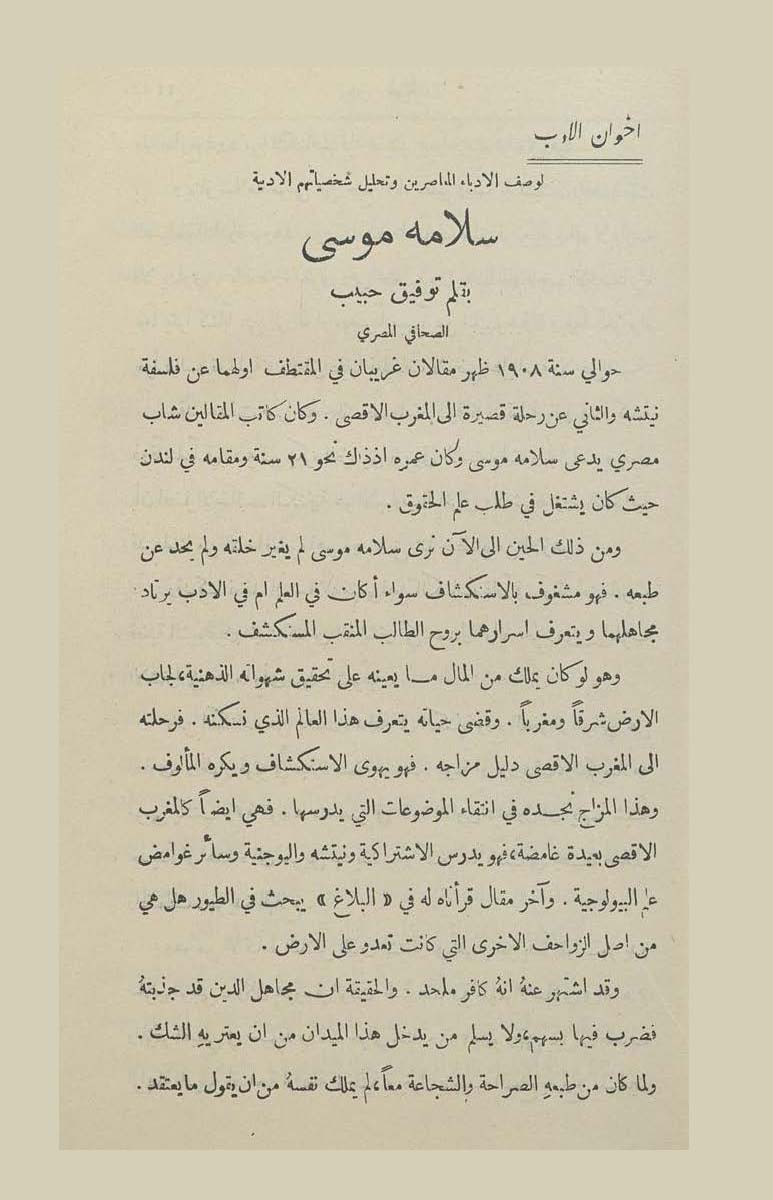 اخوان الادب
لوصف الادباء المعاصرين وتحليل شخصياتهم الادبية
سلامه موسى
بقلم توفيق حبيب
الصحافي المصري
حوالي سنة ١٩٠٨ ظهر مقالان غريبان في المقتطف اولهما عن فلسفة
نيتشه والثاني عن رحلة قصيرة الى المغرب الاقصى . وكان كاتب المقالين شاب
مصري يدعى سلامه موسى وكان عمره اذذاك نحو ٢١ سنة ومقامه في لندن
حيث كان يشتغل في طلب علم الحقوق .
ومن ذلك الحين الى الآن نرى سلامه موسى لم يغير خلقته ولم يحد عن
طبعه . فهو مشغوف بالاستكشاف سواء أكان في العلم ام في الادب يرتاد
مجاهلهما ويتعرف اسرارهما بروح الطالب المنقب المستكشف .
وهو لو كان يملك من المال ما يعينه على تحقيق شهواته الذهنية، لجاب
الارض شرقاً ومغرباً . وقضى حياته يتعرف هذا العالم الذي نسكنه . فرحلته
الى المغرب الاقصى دليل مزاجه . فهو يهوى الاستكشاف ويكره المألوف .
وهذا المزاج نجده في انتقاء الموضوعات التي يدرسها . فهي ايضاً كالمغرب
الاقصى بعيدة غامضة، فهو يدرس الاشتراكية ونيتشه واليوجنية وسائر غوامض
علم البيولوجية . وآخر مقال قرأناه له في « البلاغ » يبحث في الطيور هل هي
من اصل الزواحف الاخرى التي كانت تعدو على الارض .
وقد اشتهر عنهُ انهُ كافر ملحد . والحقيقة ان مجاهل الدين قد جذبتهُ
فضرب فيها بسهم، ولا يسلم من يدخل هذا الميدان من ان يعتريهِ الشك .
ولما كان من طبعهِ الصراحة والشجاعة معاً، لم يملك نفسهُ من ان يقول ما يعتقد .